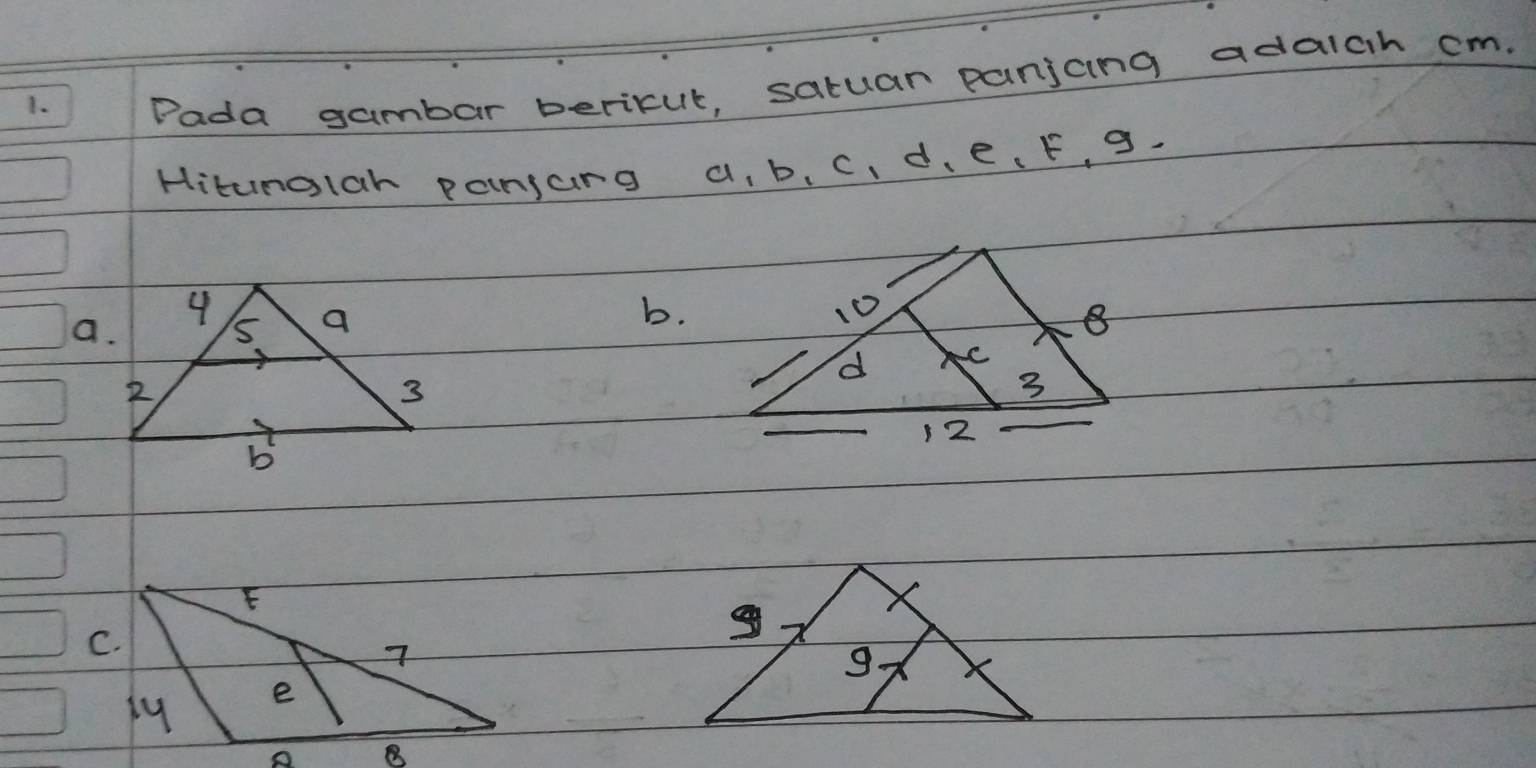 1. Pada gambar berikut, satuan panjang adalah cm.
Hitunglah panjang a, b, c, d, e, F, g.
a. 4 5 a 2 3 b
b. 10 d c 8 3 12
c. F 7 e 14 8
g